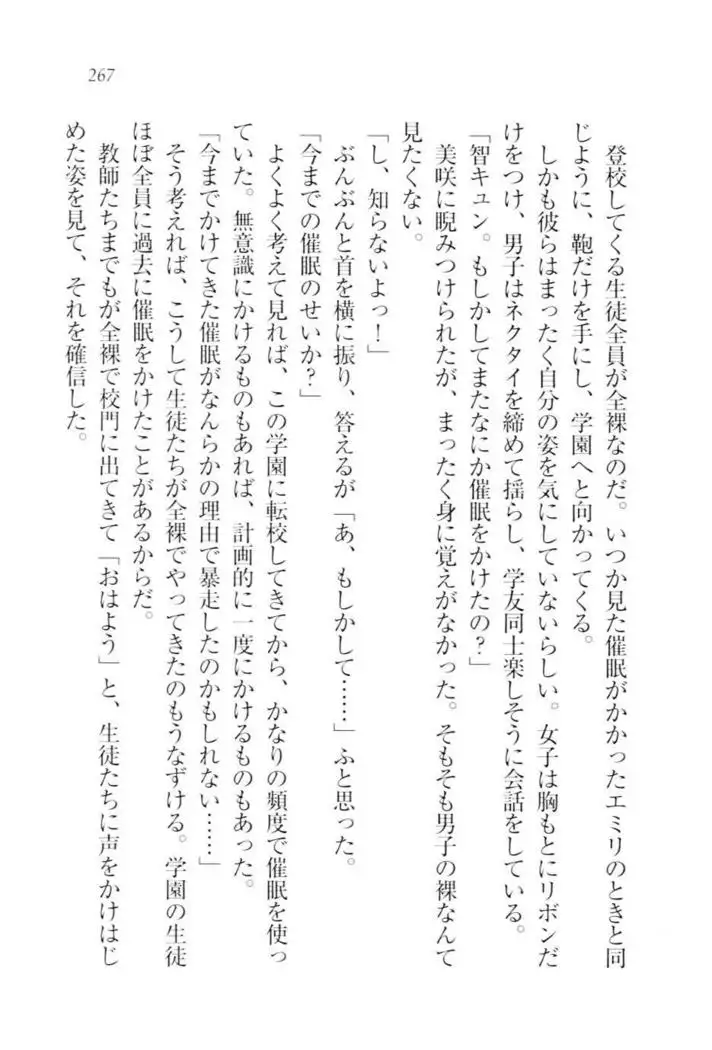 267
登校してくる生徒全員が全裸なのだ。いつか見た催眠がかかったエミリのときと同
じように、鞄だけを手にし、学園へと向かってくる。
しかも彼らはまったく自分の姿を気にしていないらしい。女子は胸もとにリボンだ
けをつけ、男子はネクタイを締めて揺らし、学友同士楽しそうに会話をしている。
「智キュン。もしかしてまたなにか催眠をかけたの？」
美咲に睨みつけられたが、まったく身に覚えがなかった。そもそも男子の裸なんて
見たくない。
「し、知らないよっ！」
ぶんぶんと首を横に振り、答えるが「あ、もしかして……」ふと思った。
「今までの催眠のせいか？」
よくよく考えて見れば、この学園に転校してきてから、かなりの頻度で催眠を使っ
ていた。無意識にかけるものもあれば、計画的に一度にかけるものもあった。
「今までかけてきた催眠がなんらかの理由で暴走したのかもしれない……」
そう考えれば、こうして生徒たちが全裸でやってきたのもうなずける。学園の生徒
ほぼ全員に過去に催眠をかけたことがあるからだ。
教師たちまでもが全裸で校門に出てきて「おはよう」と、生徒たちに声をかけはじ
めた姿を見て、それを確信した。